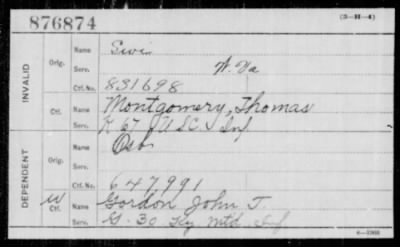 876874
(3-H-4)
INVALID
Orig.
Name
Serv.
W. Va
Ctf. No.
831698
Ctf.
Name
Montgomery, Thomas
Serv.
K 67 U.S.C. Inf
DEPENDENT
Orig.
Name
Serv.
Ctf. No.
647991
W
Ctf.
Name
Gordon John T.
Serv.
G. 30 Ky Mtd. Inf